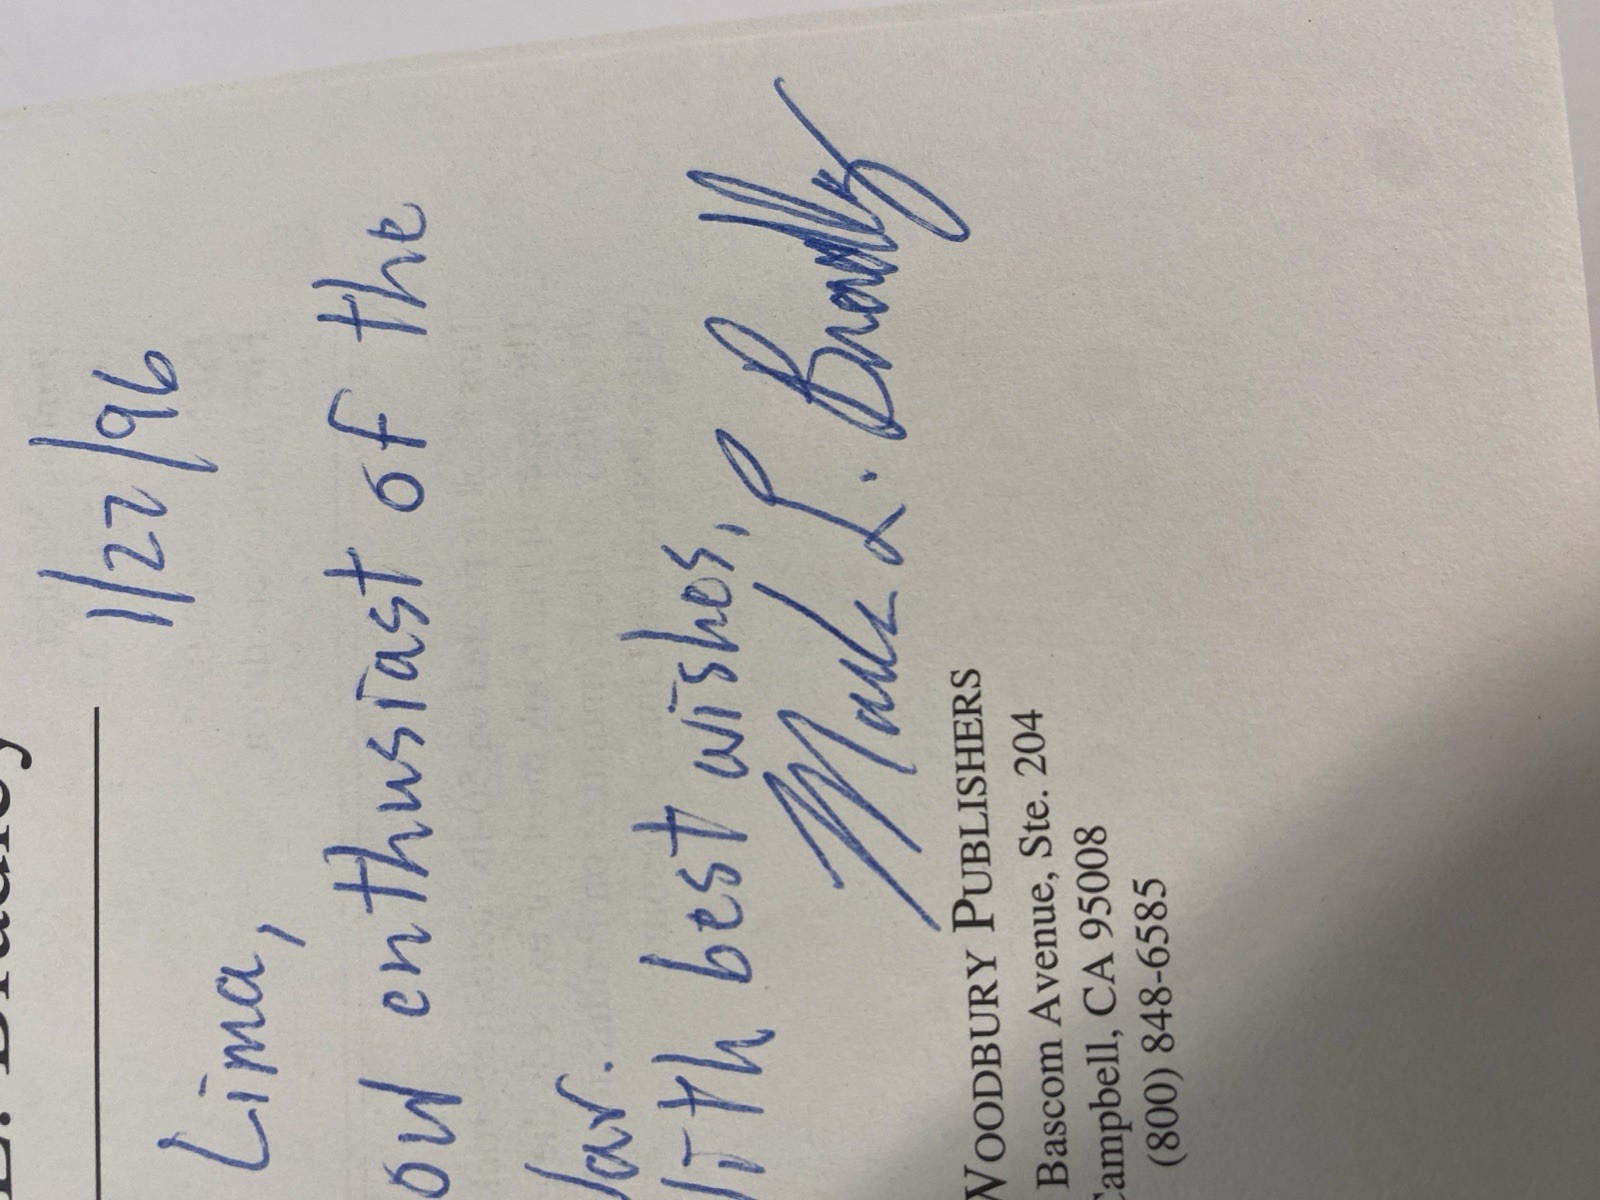 L. Bradley
1/22/96
Lima,
ow enthusiast of the
War.
With best wishes,
Mark L. Bradley
WOODBURY PUBLISHERS
Bascom Avenue, Ste. 204
Campbell, CA 95008
(800) 848-6585